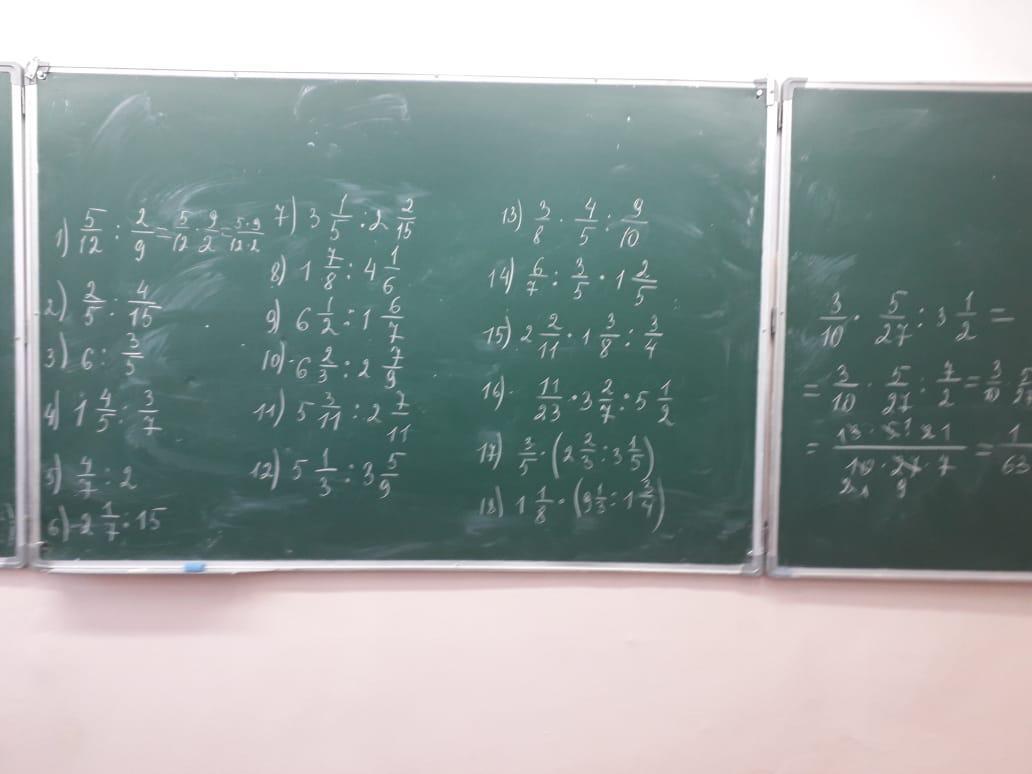 1) 5/12 : 2/9 = 5/12 · 9/2 = 5·9/12·2
2) 2/5 : 4/15
3) 6 : 3/5
4) 1 4/5 : 3/7
5) 4/7 : 2
6) 2 1/7 : 15
7) 3 1/5 : 2 2/15
8) 1 7/8 : 4 1/6
9) 6 1/2 : 1 6/7
10) 6 2/3 : 2 7/9
11) 5 3/11 : 2 7/11
12) 5 1/3 : 3 5/9
13) 3/8 · 4/5 : 9/10
14) 6/7 : 3/5 · 1 2/5
15) 2 2/11 · 1 3/8 : 3/4
16) 11/23 · 3 2/7 : 5 1/2
17) 3/5 · (2 2/3 : 3 1/5)
18) 1 1/8 · (3 1/3 : 1 3/4)
3/10 · 5/27 : 3 1/2 =
= 3/10 · 5/27 : 7/2 = 3/10
= = 1/63